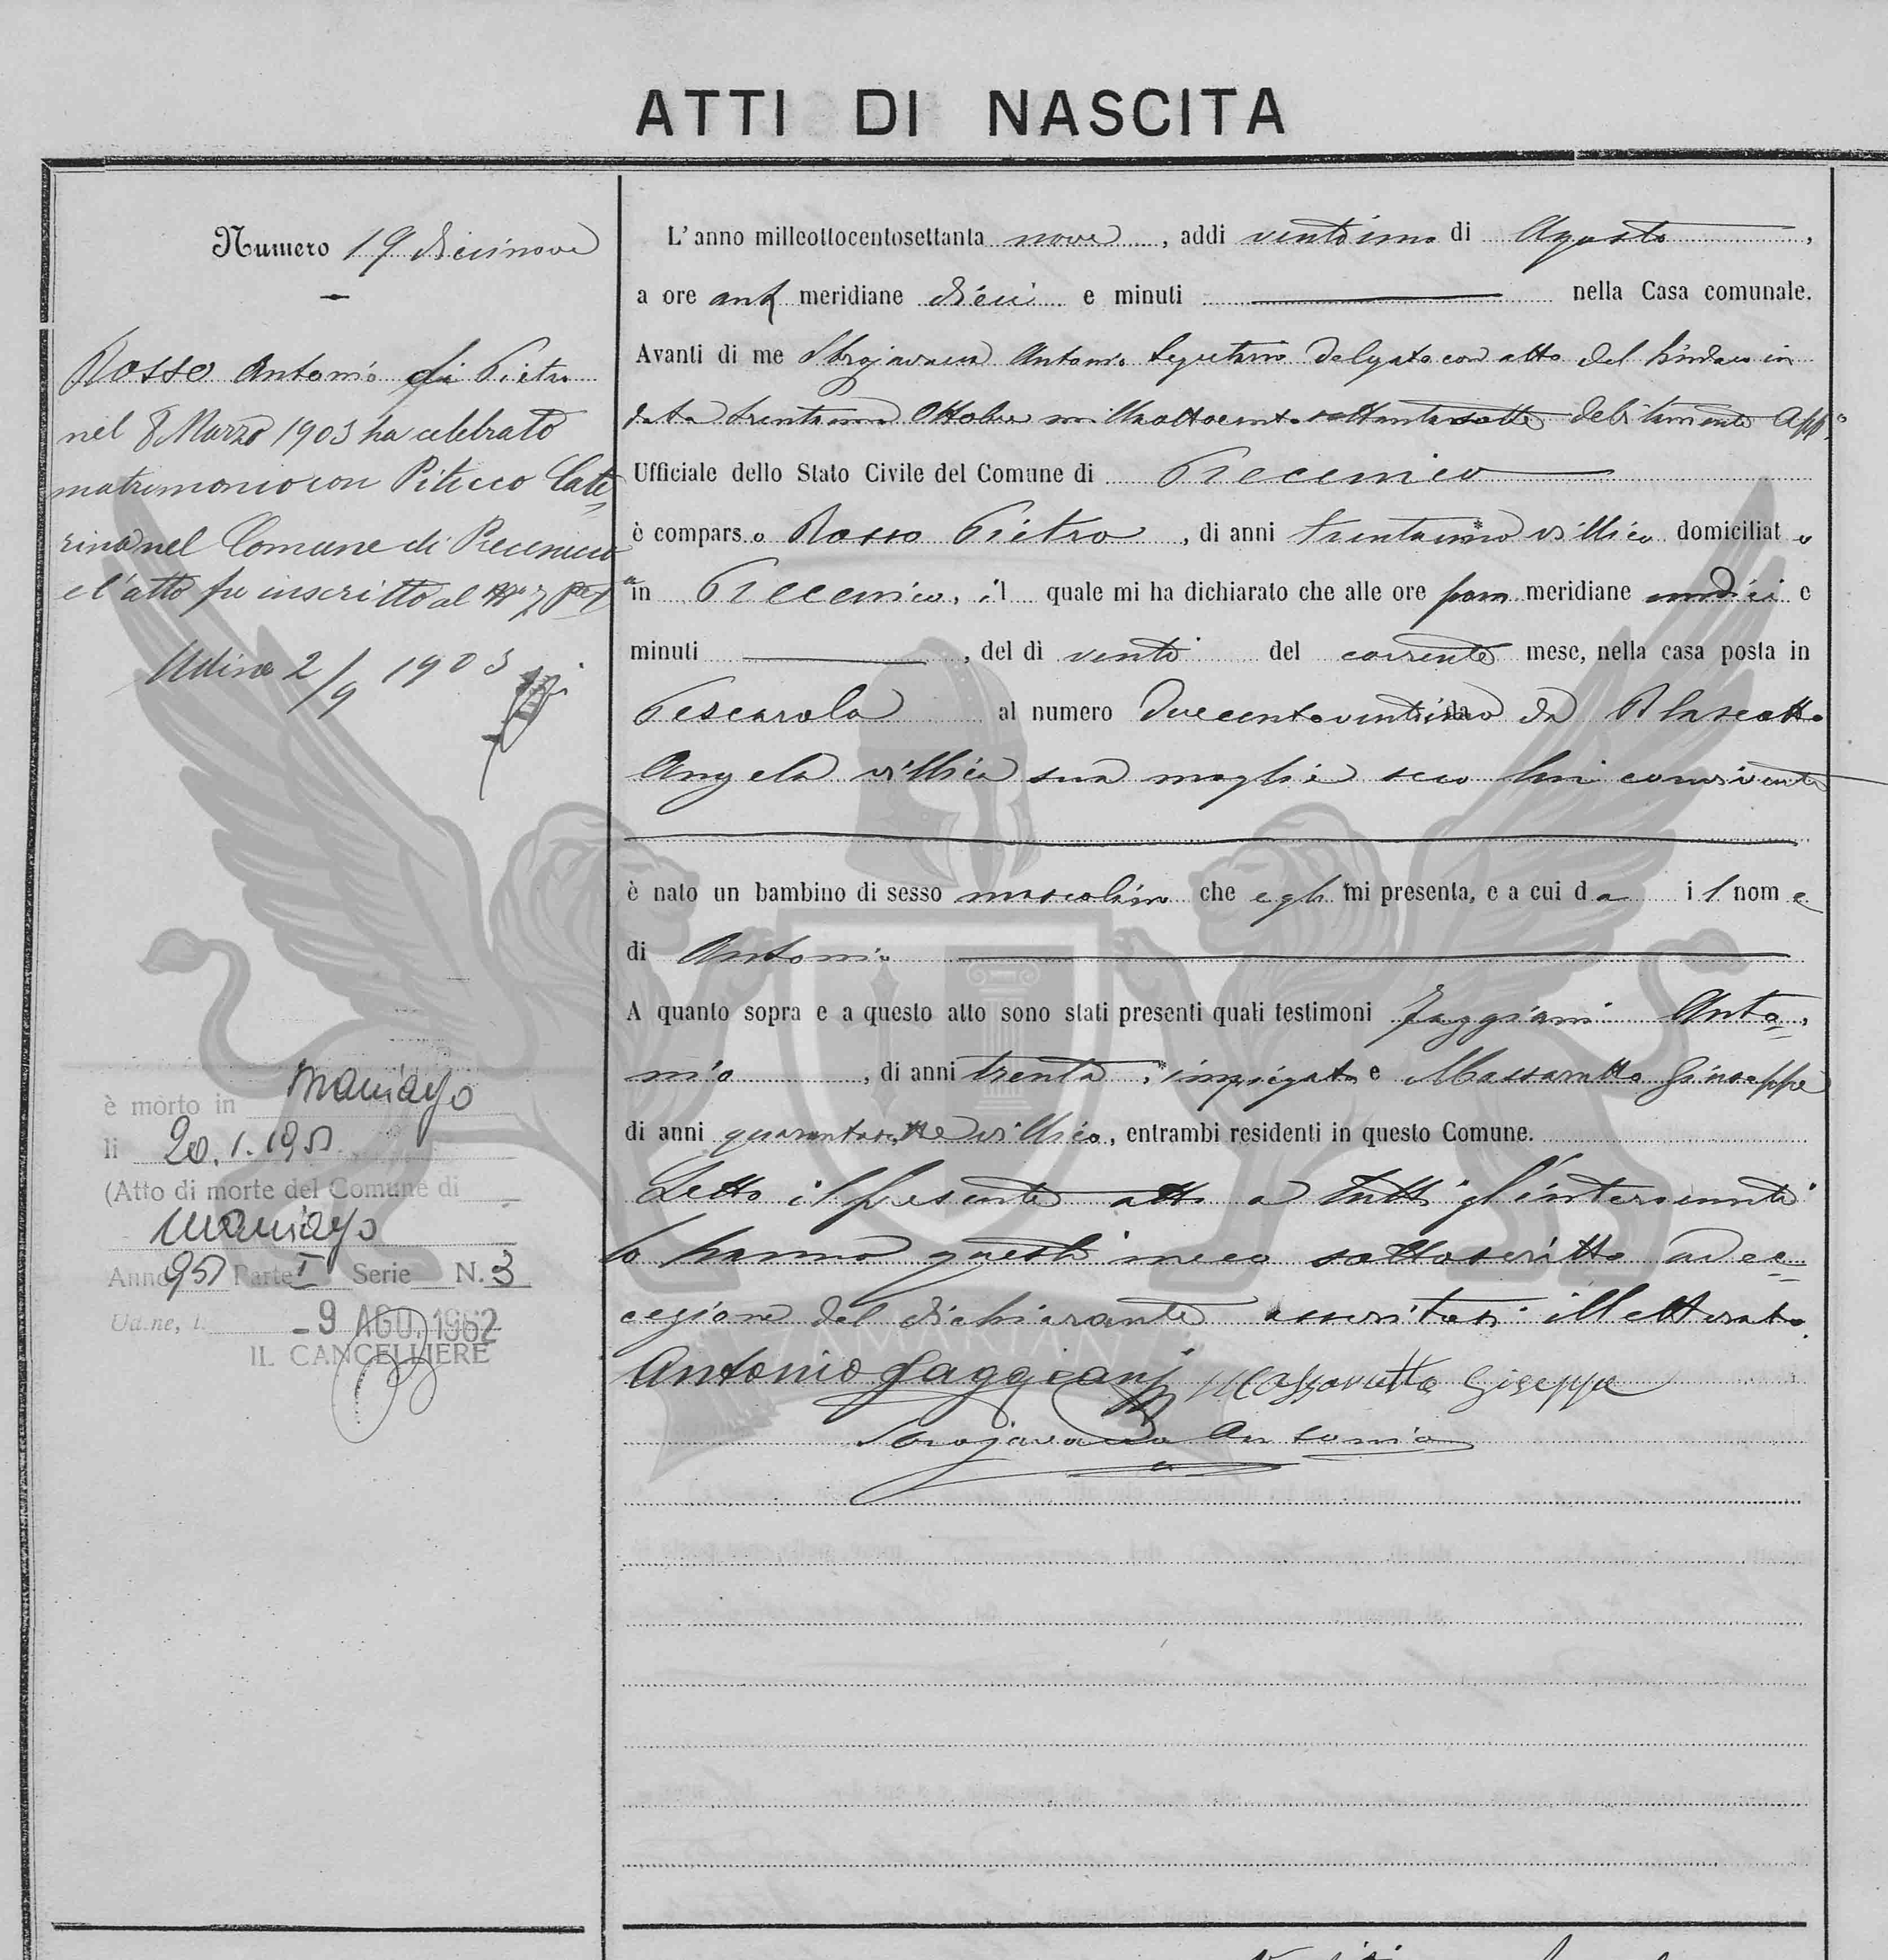 ATTI DI NASCITA
Numero 19 diecinove
Rosso Antonio di Pietro
nel 8 Marzo 1903 ha celebrato
matrimonio con Piticco Cate
rina nel Comune di Precenicco
e l'atto fu inscritto al N° 7 Pte I
Udine 2/9 1903
è morto in Maniago
li 20.1.1951
(Atto di morte del Comune di
Maniago
Anno 951 Parte I Serie N. 3
Udine, li -9 AGO. 1962
IL CANCELLIERE
L'anno milleottocentosettanta nove, addi ventuno di Agosto,
a ore ant meridiane dieci e minuti nella Casa comunale.
Avanti di me Antonio Segretario delegato con atto del Sindaco in
data trentuno Ottobre milleottocentosettantasette debitamente App.°
Ufficiale dello Stato Civile del Comune di Precenico
è comparso Rosso Pietro, di anni villico domiciliato
in Precenico, il quale mi ha dichiarato che alle ore pom meridiane undici e
minuti , del dì venti del corrente mese, nella casa posta in
Pescarola al numero da Blaseotto
Angela villica sua moglie seco lui convivente
è nato un bambino di sesso mascolino che egli mi presenta, e a cui da il nome
di Antonio
A quanto sopra e a questo atto sono stati presenti quali testimoni Faggiani Anto=
nio, di anni trenta, impiegato e Massarutto Giuseppe
di anni villico, entrambi residenti in questo Comune.
Letto il presente atto a tutti gl'intervenuti
lo hanno questi meco sottoscritto ad ec=
cezione del dichiarante illetterato.
Antonio Faggiani Massarutto Giseppe
Antonio